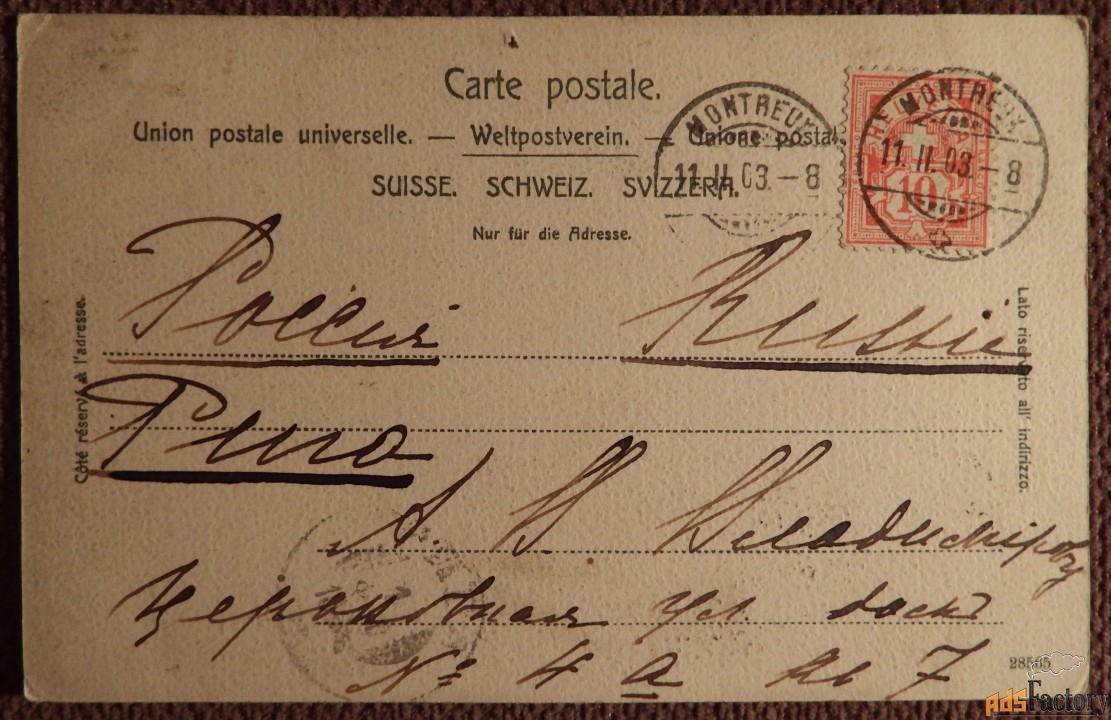 Carte postale.
Union postale universelle. — Weltpostverein. — Unione postal
SUISSE. SCHWEIZ. SVIZZERA.
Nur für die Adresse.
MONTREUX
11.II.03.–8
MONTREUX
11.II.03.–8
10
Côté réservé à l'adresse.
Lato riservato all' indirizzo.
Россия Russie
Рига
А. И.
ул.
№ 4 а кв 7
28505
AdsFactory